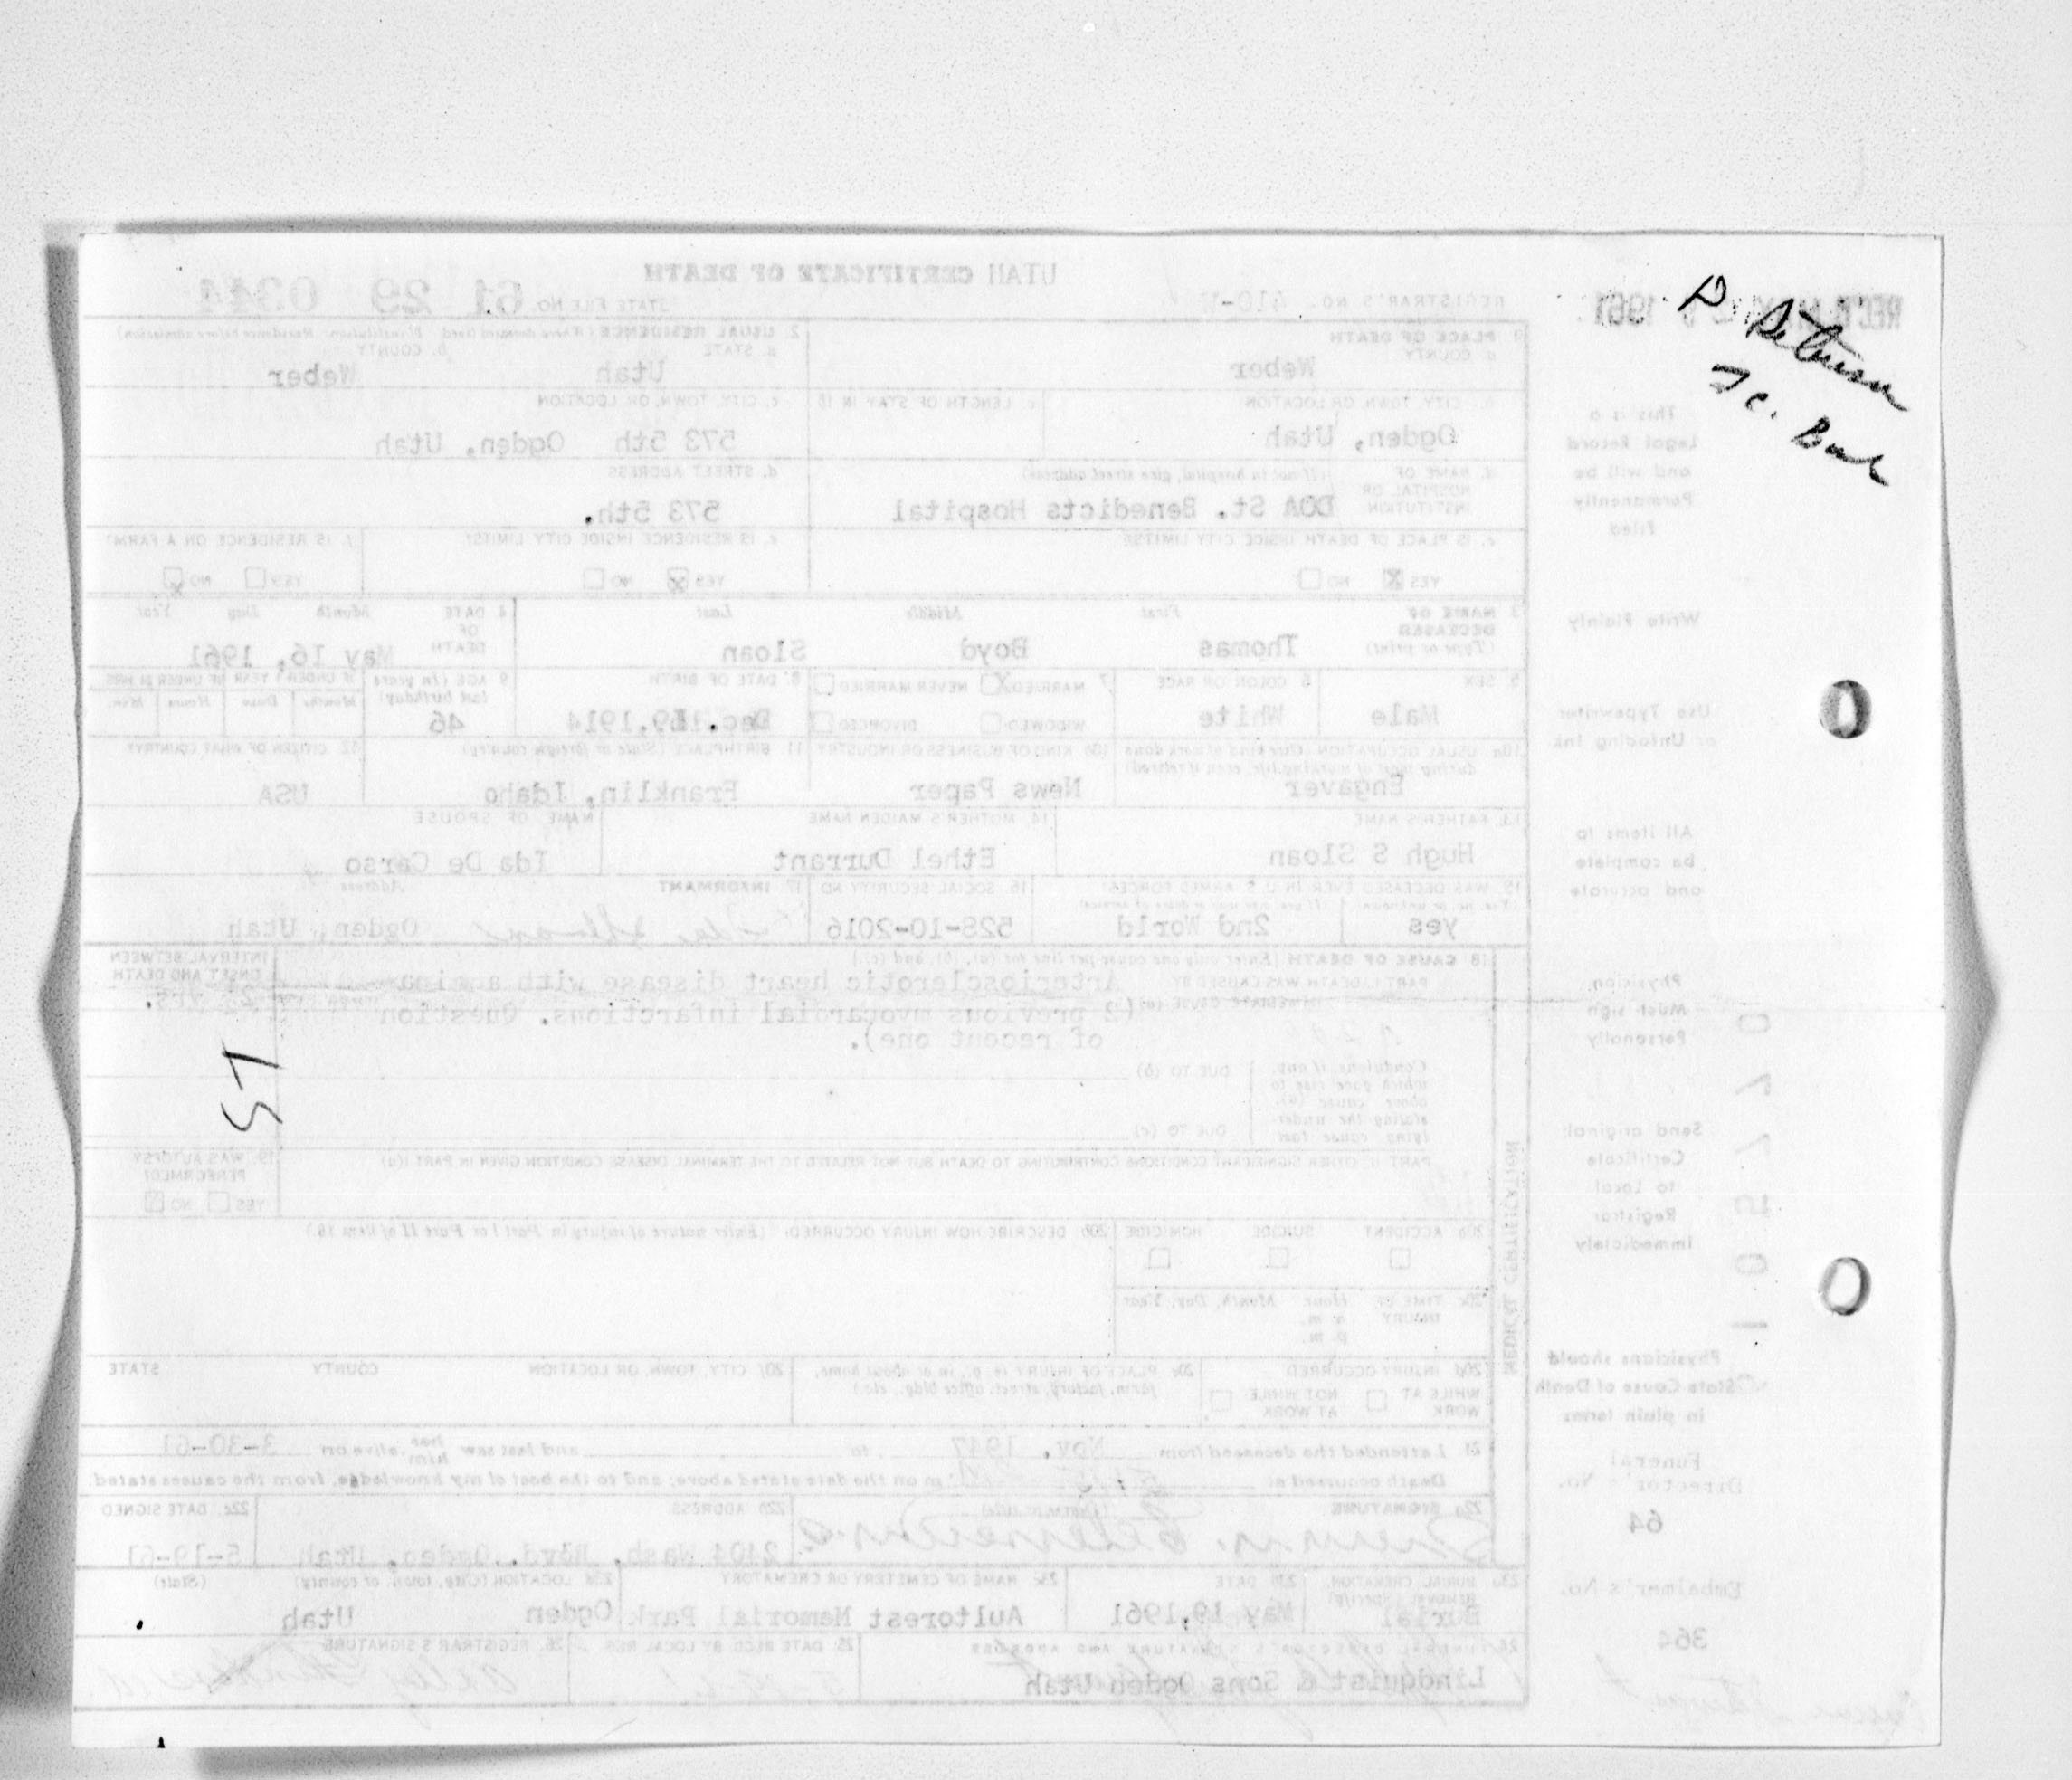 UTAH CERTIFICATE OF DEATH
REGISTRAR'S NO. 410-W
STATE FILE NO. 61 29 0344
REC'D MAY 1961
1. PLACE OF DEATH
a. COUNTY
Weber
2. USUAL RESIDENCE (Where deceased lived. If institution: Residence before admission)
a. STATE b. COUNTY
Utah Weber
b. CITY, TOWN, OR LOCATION
Ogden, Utah
c. LENGTH OF STAY IN 1b
c. CITY, TOWN, OR LOCATION
573 5th Ogden, Utah
d. NAME OF HOSPITAL OR INSTITUTION (If not in hospital, give street address)
DOA St. Benedicts Hospital
d. STREET ADDRESS
573 5th.
e. IS PLACE OF DEATH INSIDE CITY LIMITS?
YES X NO
e. IS RESIDENCE INSIDE CITY LIMITS?
YES X NO
f. IS RESIDENCE ON A FARM?
YES NO X
3. NAME OF DECEASED (Type or print) First Middle Last
Thomas Boyd Sloan
4. DATE OF DEATH Month Day Year
May 16, 1961
5. SEX
Male
6. COLOR OR RACE
White
7. MARRIED X NEVER MARRIED
WIDOWED DIVORCED
8. DATE OF BIRTH
Dec. 19,1914
9. AGE (In years last birthday)
46
IF UNDER 1 YEAR IF UNDER 24 HRS
Months Days Hours Min.
10a. USUAL OCCUPATION (Give kind of work done during most of working life, even if retired)
Engaver
10b. KIND OF BUSINESS OR INDUSTRY
News Paper
11. BIRTHPLACE (State or foreign country)
Franklin, Idaho
12. CITIZEN OF WHAT COUNTRY?
USA
13. FATHER'S NAME
Hugh S Sloan
14. MOTHER'S MAIDEN NAME
Ethel Durrant
NAME OF SPOUSE
Ida De Carso
15. WAS DECEASED EVER IN U. S. ARMED FORCES?
(Yes, no, or unknown) (If yes, give war or dates of service)
yes 2nd World
16. SOCIAL SECURITY NO.
528-10-2016
17. INFORMANT Address
Ogden, Utah
18. CAUSE OF DEATH [Enter only one cause per line for (a), (b), and (c).]
PART I. DEATH WAS CAUSED BY:
IMMEDIATE CAUSE (a)
Arteriosclerotic heart disease with angina
(2 previous myocardial infarctions. Question
of recent one).
INTERVAL BETWEEN ONSET AND DEATH
yrs.
Conditions, if any, which gave rise to above cause (a), stating the underlying cause last
DUE TO (b)
DUE TO (c)
PART II. OTHER SIGNIFICANT CONDITIONS CONTRIBUTING TO DEATH BUT NOT RELATED TO THE TERMINAL DISEASE CONDITION GIVEN IN PART I(a)
19. WAS AUTOPSY PERFORMED?
YES NO X
20a. ACCIDENT SUICIDE HOMICIDE
20b. DESCRIBE HOW INJURY OCCURRED. (Enter nature of injury in Part I or Part II of item 18.)
20c. TIME OF INJURY Hour Month, Day, Year
a. m.
p. m.
20d. INJURY OCCURRED
WHILE AT WORK NOT WHILE AT WORK
20e. PLACE OF INJURY (e. g., in or about home, farm, factory, street, office bldg., etc.)
20f. CITY, TOWN, OR LOCATION COUNTY STATE
21. I attended the deceased from Nov. 1947 to and last saw her him alive on 3-30-61
Death occurred at m on the date stated above; and to the best of my knowledge, from the causes stated.
22a. SIGNATURE (Degree or title)
22b. ADDRESS
Wash. Blvd. Ogden, Utah
22c. DATE SIGNED
5-19-61
23a. BURIAL, CREMATION, REMOVAL (Specify)
Burial
23b. DATE
May 19,1961
23c. NAME OF CEMETERY OR CREMATORY
Aultorest Memorial Park
23d. LOCATION (City, town, or county) (State)
Ogden Utah
24. FUNERAL DIRECTOR'S SIGNATURE AND ADDRESS
Lindquist & Sons Ogden Utah
25. DATE RECD BY LOCAL REG.
26. REGISTRAR'S SIGNATURE
MEDICAL CERTIFICATION
This is a
Legal Record
and will be
Permanently
Filed
Write Plainly
Use Typewriter
or Unfading Ink
All items to
be complete
and accurate
Physician
Must sign
Personally
Send original
Certificate
to Local
Registrar
Immediately
Physicians should
State Cause of Death
in plain terms
Funeral
Director's No.
64
Embalmer's No.
364